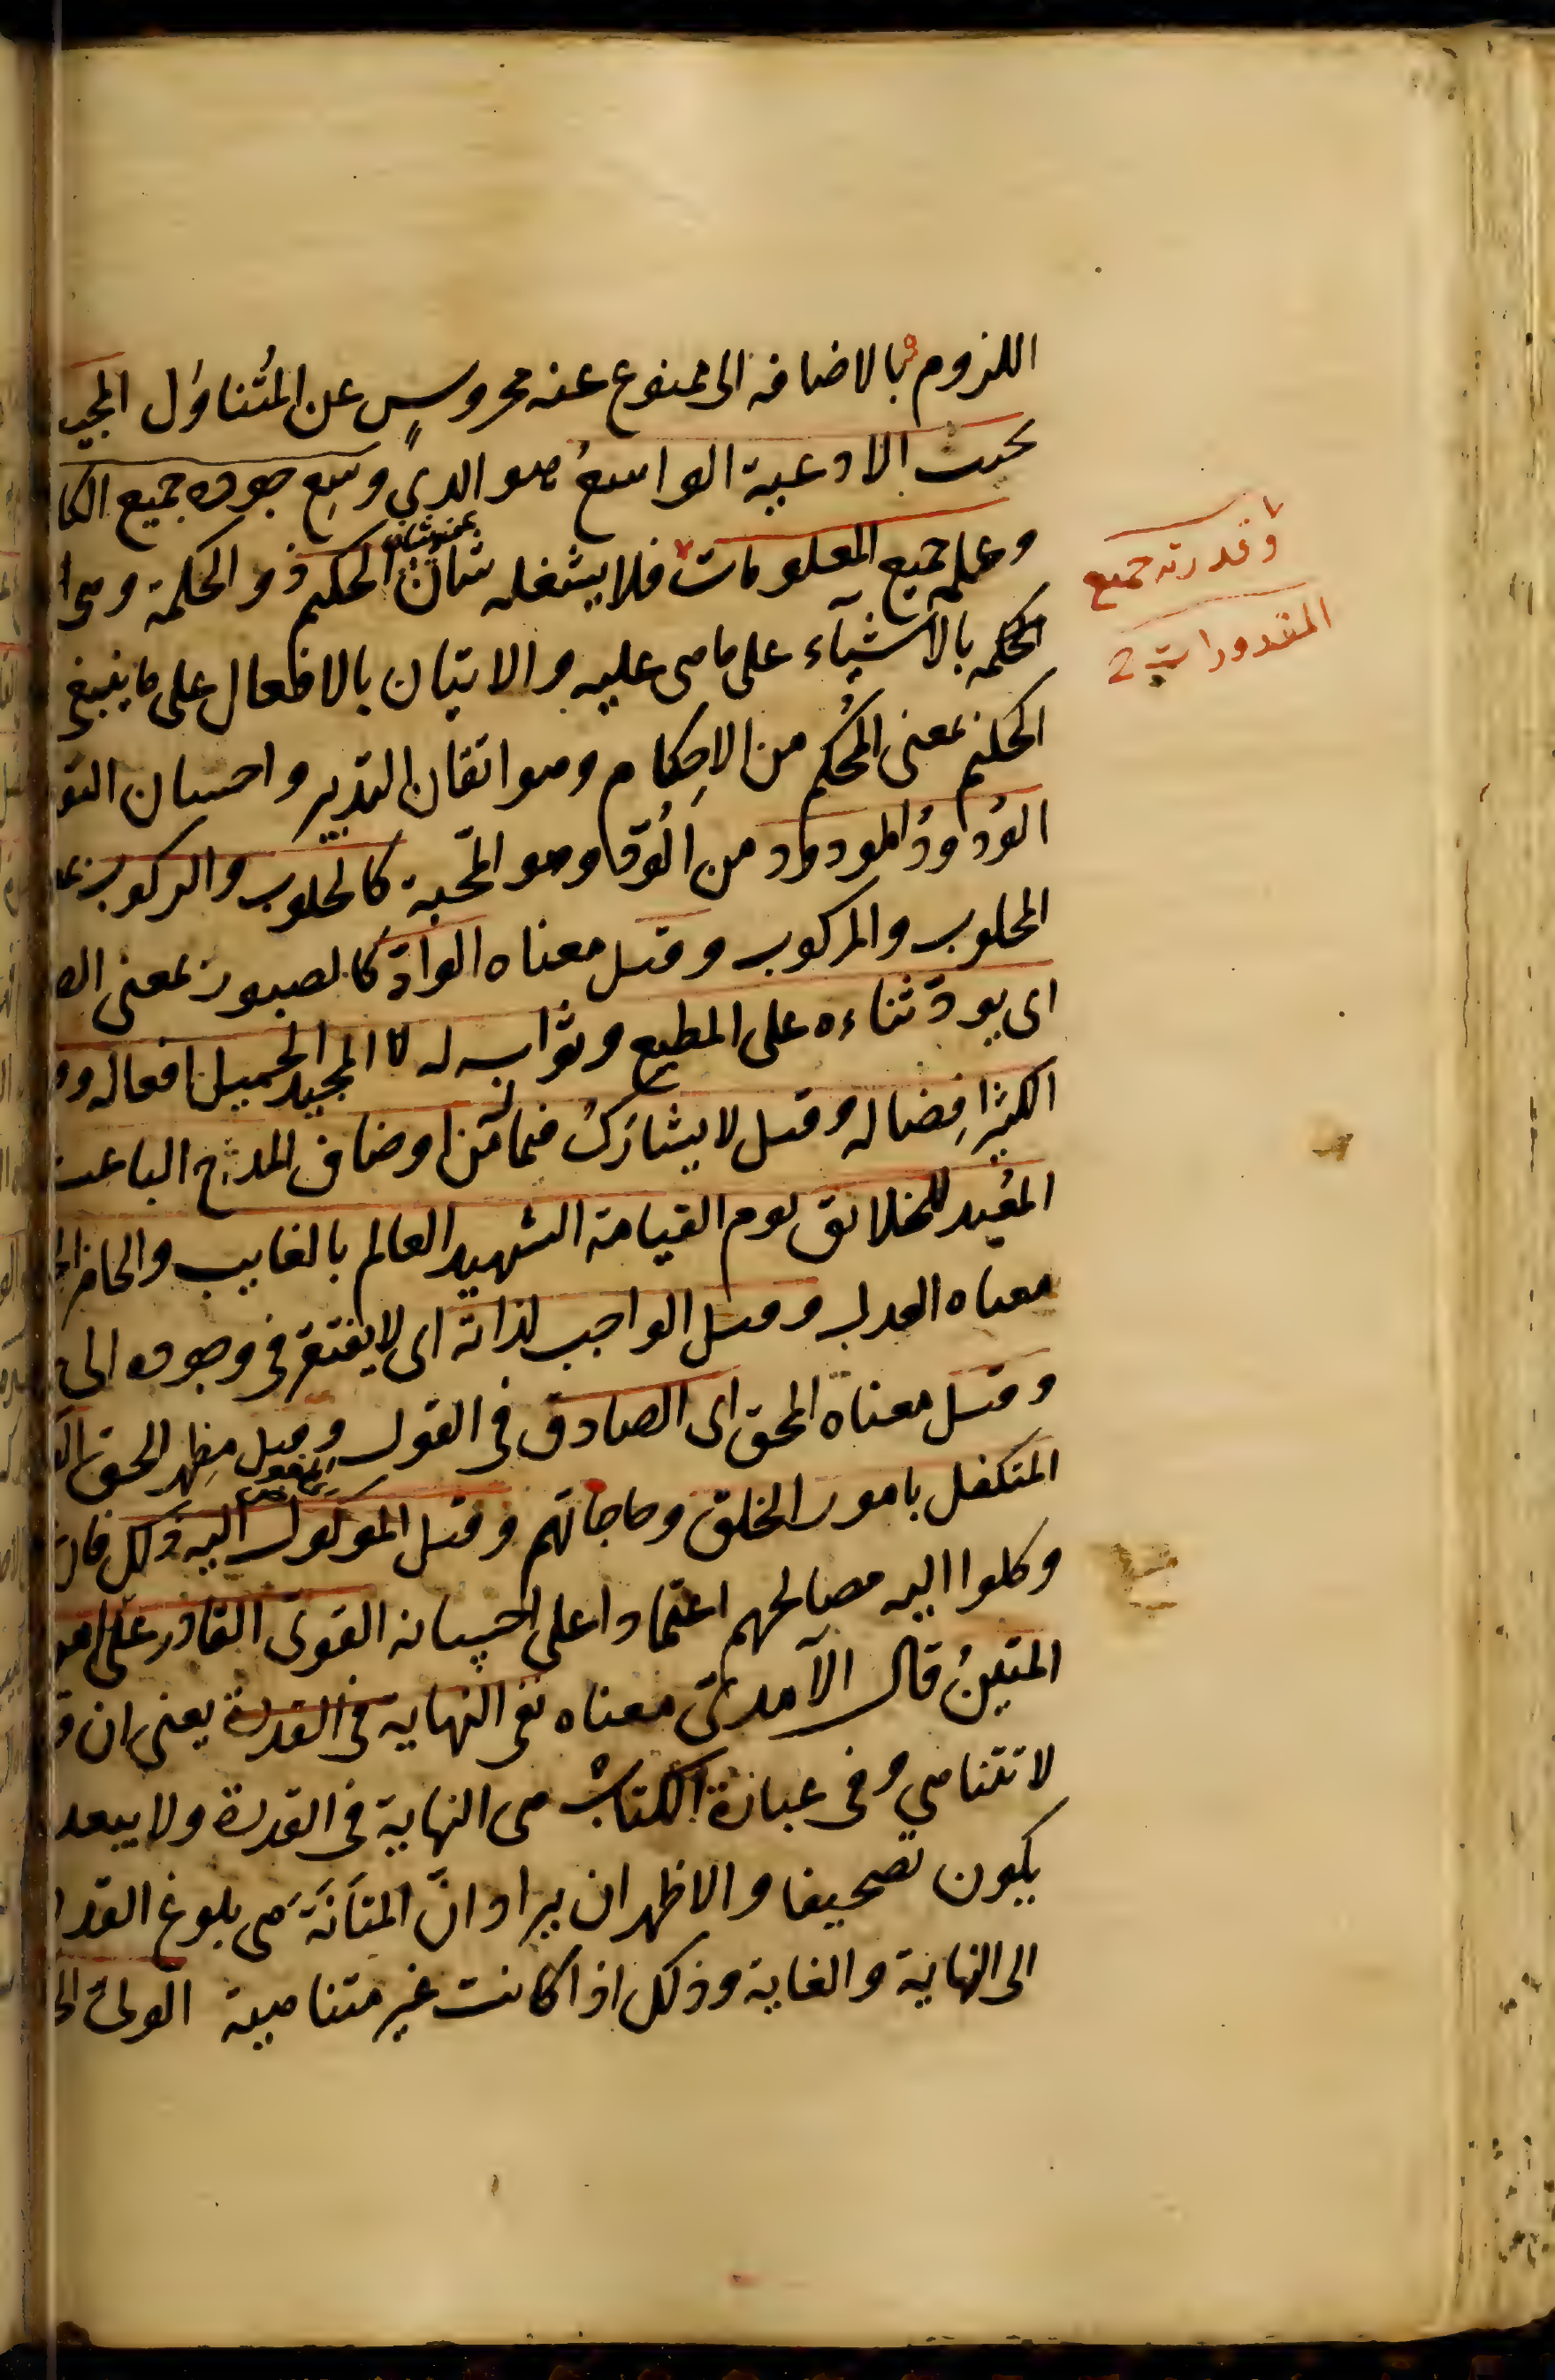 اللزوم بالاضافة الى ممنوع عنه محروسٍ عن المُتناوَل المجيب
يجيب الادعية الواسعُ هو الذي وسِع جوده جميع الكا
وعلمه جميع المعلومات فلا يشغله شان عن شان الحكيم ذو الحكمة وهي ا
لحكمه بالاشياء على ما هي عليه والاتيان بالافعال على ما ينبغي
الحكيم بمعنى المُحكِم من الاِحكام وهو اتقان التدبير واحسان التق
الوَدودُ المودود من الوُدّ وهو المحبة كالحلوب والركوب بمعـ
المحلوب والمركوب وقيل معناه الوادّ كالصبور بمعنى الصـ
اى يودّ ثناءه على المطيع وثوابه له المجيد الجميل افعاله و
الكثير اِفضاله وقيل لا يشارَك فيما له من اوصاف المدح الباعث
المُعيد للخلائق يوم القيامة الشهيد العالم بالغايب والحاضر الحـ
معناه العدل وقيل الواجب لذاته اى لا يفتقر في وجوده الى
وقيل معناه المحق اى الصادق في القول وقيل مظهر الحق الو
المتكفل بامور الخلق وحاجاتهم وقيل الموكول اليه ذلك فان
وكلوا اليه مصالحهم اعتمادا على احسانه القوى القادر على امر
المتينُ قال الآمدىّ معناه نفى النهاية في القدرة يعنى ان ق
لا تتناهي وفى عبارة الكتاب هى النهاية في القدرة ولا يبعد
يكون تصحيفا والاظهر ان يراد انّ المتانَةَ هى بلوغ القد
الى النهاية والغاية وذلك اذا كانت غير متناهية الولىّ الحـ
وقدرته جميع
المقدورات